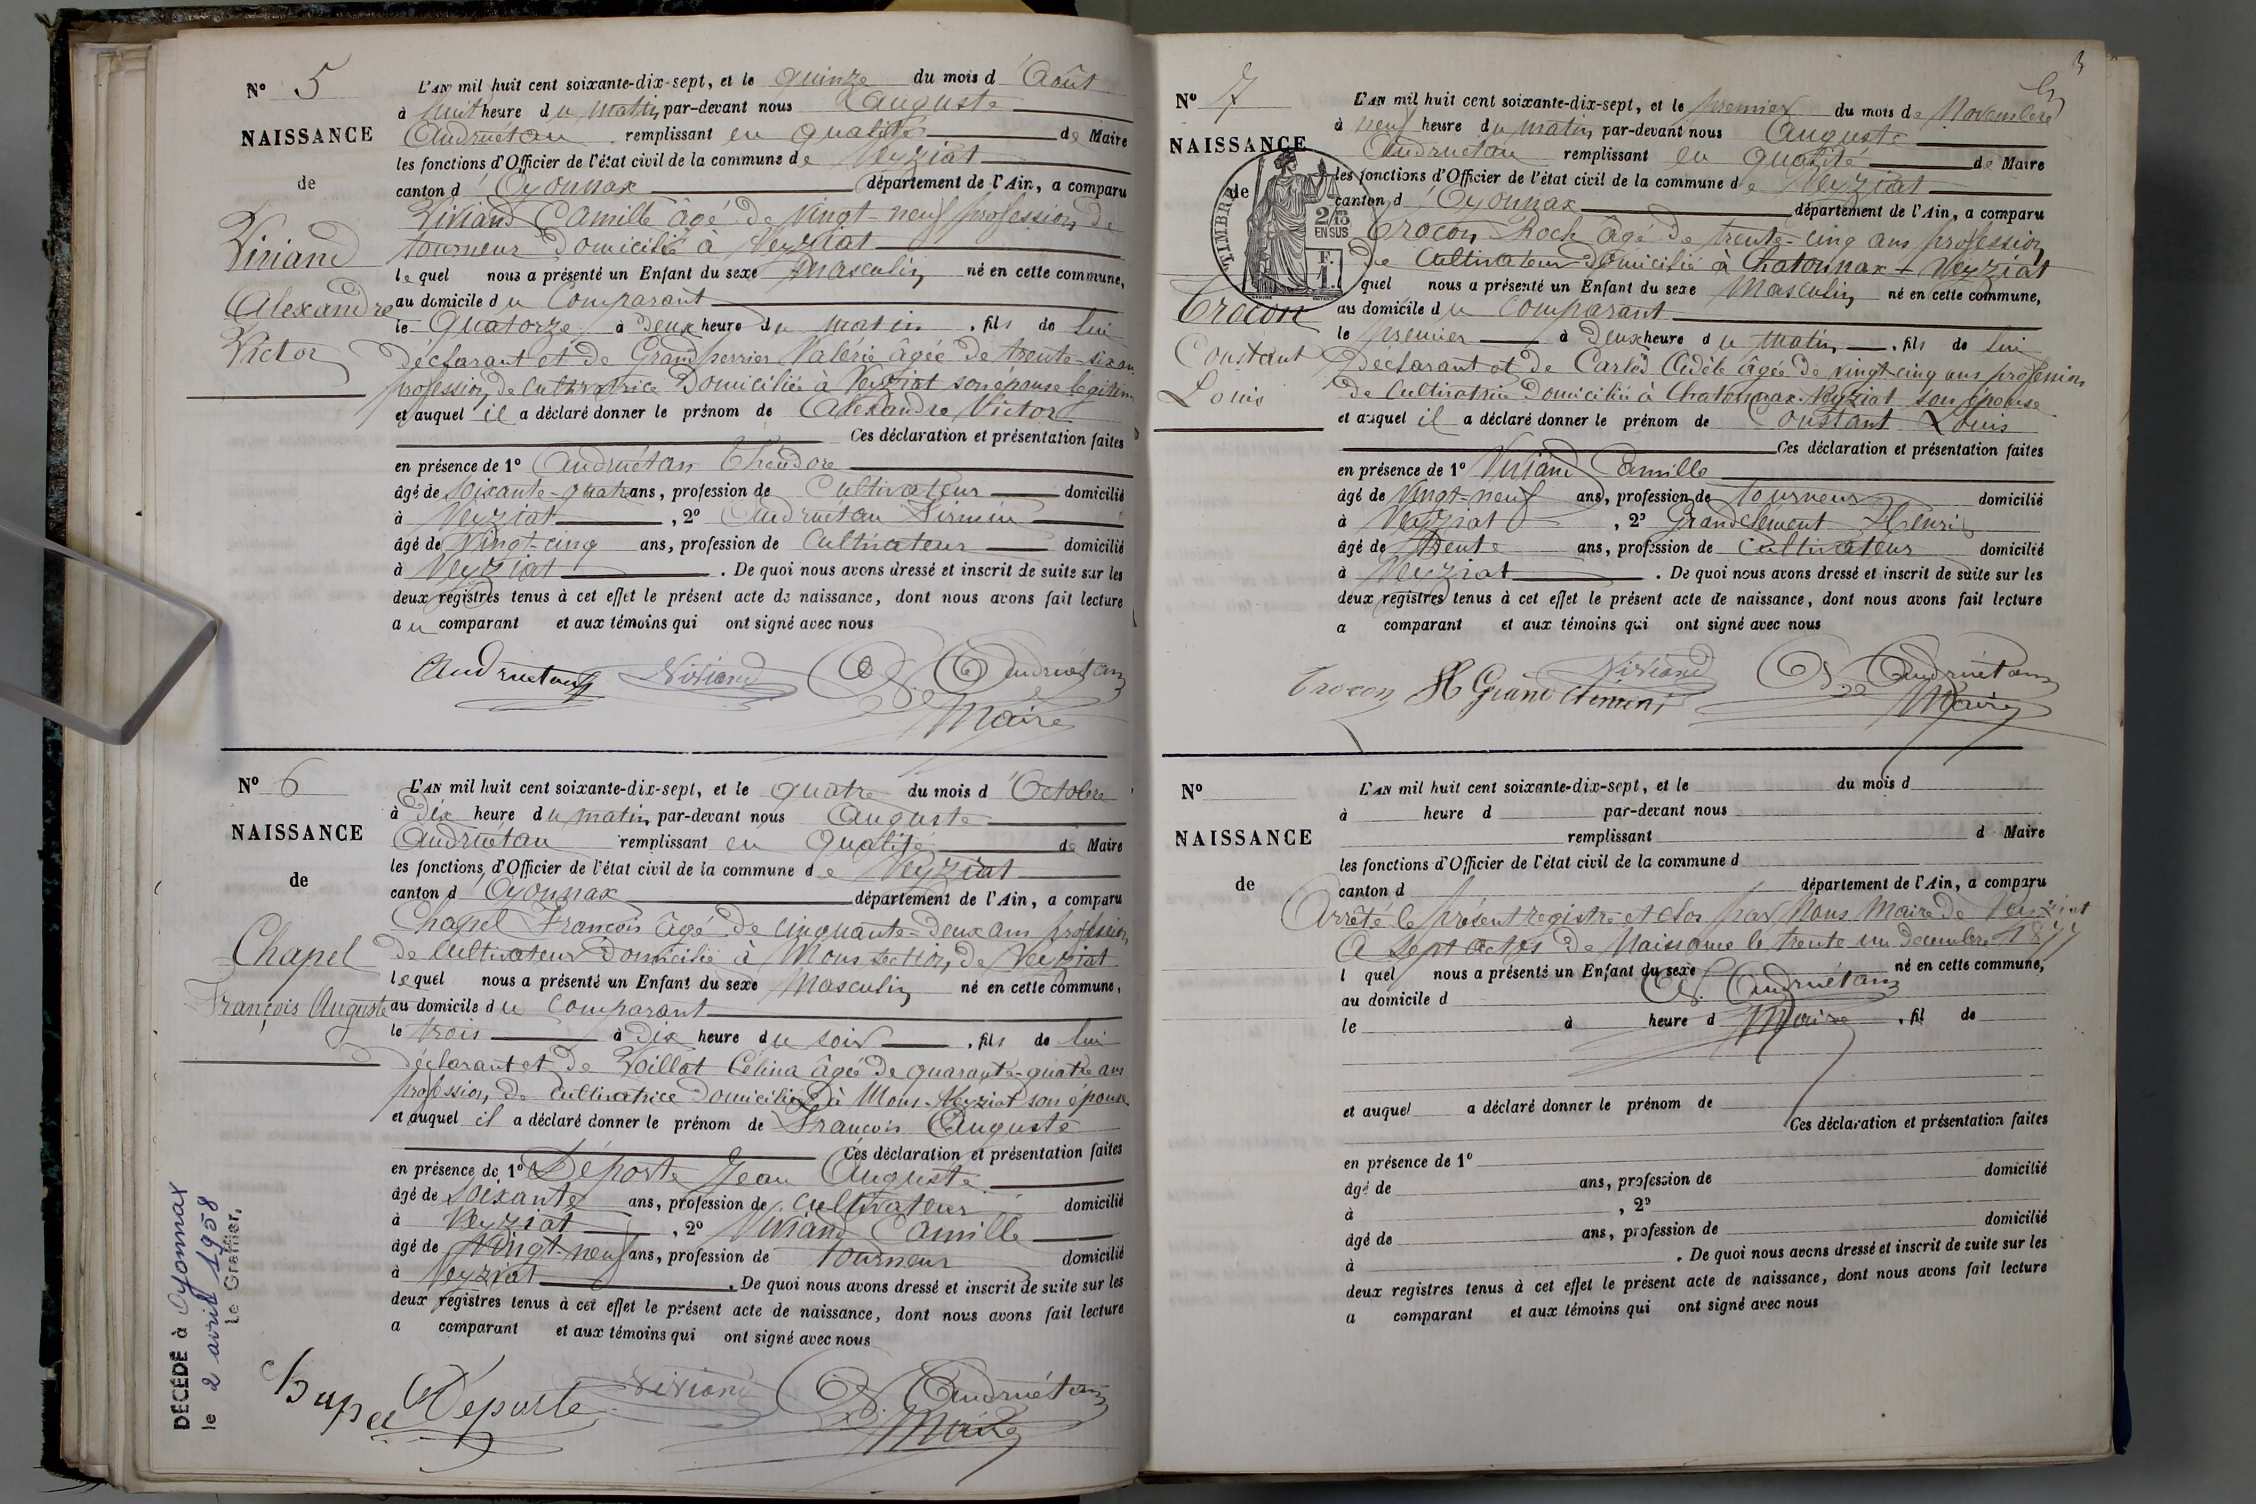 N° 5
NAISSANCE
de
Viviand
Alexandre
Victor
L'AN mil huit cent soixante-dix-sept, et le quinze du mois d'Août
à huit heure du matin par-devant nous Auguste
Andruétan remplissant en qualité de Maire
les fonctions d'Officier de l'état civil de la commune de Veyziat
canton d'Oyonnax département de l'Ain, a comparu
Viviand Camille âgé de vingt-neuf profession de
tourneur domicilié à Veyziat
lequel nous a présenté un Enfant du sexe Masculin né en cette commune,
au domicile du Comparant
le Quatorze à deux heure du matin, fils de lui
déclarant et de Grandperrier Valérie âgée de trente-six ans
profession de cultivatrice domiciliée à Veyziat son épouse légitime
et auquel il a déclaré donner le prénom de Alexandre Victor
Ces déclaration et présentation faites
en présence de 1° Andruétan Théodore
âgé de soixante-quatre ans, profession de Cultivateur domicilié
à Veyziat, 2° Andruétan Firmin
âgé de Vingt-cinq ans, profession de Cultivateur domicilié
à Veyziat. De quoi nous avons dressé et inscrit de suite sur les
deux registres tenus à cet effet le présent acte de naissance, dont nous avons fait lecture
au comparant et aux témoins qui ont signé avec nous
Andruetan Viviand A. Andruétan
Maire
N° 6
NAISSANCE
de
Chapel
François Auguste
L'AN mil huit cent soixante-dix-sept, et le quatre du mois d'Octobre
à dix heure du matin par-devant nous Auguste
Andruétan remplissant en qualité de Maire
les fonctions d'Officier de l'état civil de la commune de Veyziat
canton d'Oyonnax département de l'Ain, a comparu
Chapel François âgé de cinquante-deux ans profession
de Cultivateur domicilié à Mons section de Veyziat
lequel nous a présenté un Enfant du sexe Masculin né en cette commune,
au domicile du Comparant
le trois à dix heure du soir, fils de lui
déclarant et de Voillat Célina âgée de quarante-quatre ans
profession de cultivatrice domiciliée à Mons-Veyziat son épouse
et auquel il a déclaré donner le prénom de François Auguste
Ces déclaration et présentation faites
en présence de 1° Déporte Jean Auguste
âgé de Soixante ans, profession de cultivateur domicilié
à Veyziat, 2° Viviand Camille
âgé de Vingt-neuf ans, profession de tourneur domicilié
à Veyziat. De quoi nous avons dressé et inscrit de suite sur les
deux registres tenus à cet effet le présent acte de naissance, dont nous avons fait lecture
a comparant et aux témoins qui ont signé avec nous
Déporte Viviand A. Andruétan
Maire
DÉCÉDÉ à Oyonnax
le 2 avril 1958
Le Greffier,
3
N° 7
NAISSANCE
de
TIMBRE
2/10 EN SUS
F. 1.
Crocon
Constant
Louis
L'AN mil huit cent soixante-dix-sept, et le premier du mois de Novembre
à neuf heure du matin par-devant nous Auguste
Andruétan remplissant en qualité de Maire
les fonctions d'Officier de l'état civil de la commune de Veyziat
canton d'Oyonnax département de l'Ain, a comparu
Crocon Roch âgé de trente-cinq ans profession
de Cultivateur domicilié à Chatonnax - Veyziat
quel nous a présenté un Enfant du sexe Masculin né en cette commune,
au domicile du Comparant
le premier à deux heure du matin, fils de lui
Déclarant et de Carlod Adèle âgée de vingt-cinq ans profession
de Cultivatrice domiciliée à Chatonnax-Veyziat son épouse
et auquel il a déclaré donner le prénom de Constant Louis
Ces déclaration et présentation faites
en présence de 1° Viviand Camille
âgé de Vingt-neuf ans, profession de tourneur domicilié
à Veyziat, 2° Grandclément Henri
âgé de Trente ans, profession de cultivateur domicilié
à Veyziat. De quoi nous avons dressé et inscrit de suite sur les
deux registres tenus à cet effet le présent acte de naissance, dont nous avons fait lecture
a comparant et aux témoins qui ont signé avec nous
Crocon H Grand Clement Viviand A. Andruétan
Maire
N°
NAISSANCE
de
L'AN mil huit cent soixante-dix-sept, et le du mois d
à heure d par-devant nous
remplissant d Maire
les fonctions d'Officier de l'état civil de la commune d
canton d département de l'Ain, a comparu
Arrêté le présent registre et clos par Nous Maire de Veyziat
A sept actes de Naissance le trente un décembre 1877
l quel nous a présenté un Enfant du sexe né en cette commune,
A. Andruétan
au domicile d
le à heure d , fil de
Maire
et auquel a déclaré donner le prénom de
Ces déclaration et présentation faites
en présence de 1°
âgé de ans, profession de domicilié
à , 2°
âgé de ans, profession de domicilié
à . De quoi nous avons dressé et inscrit de suite sur les
deux registres tenus à cet effet le présent acte de naissance, dont nous avons fait lecture
a comparant et aux témoins qui ont signé avec nous